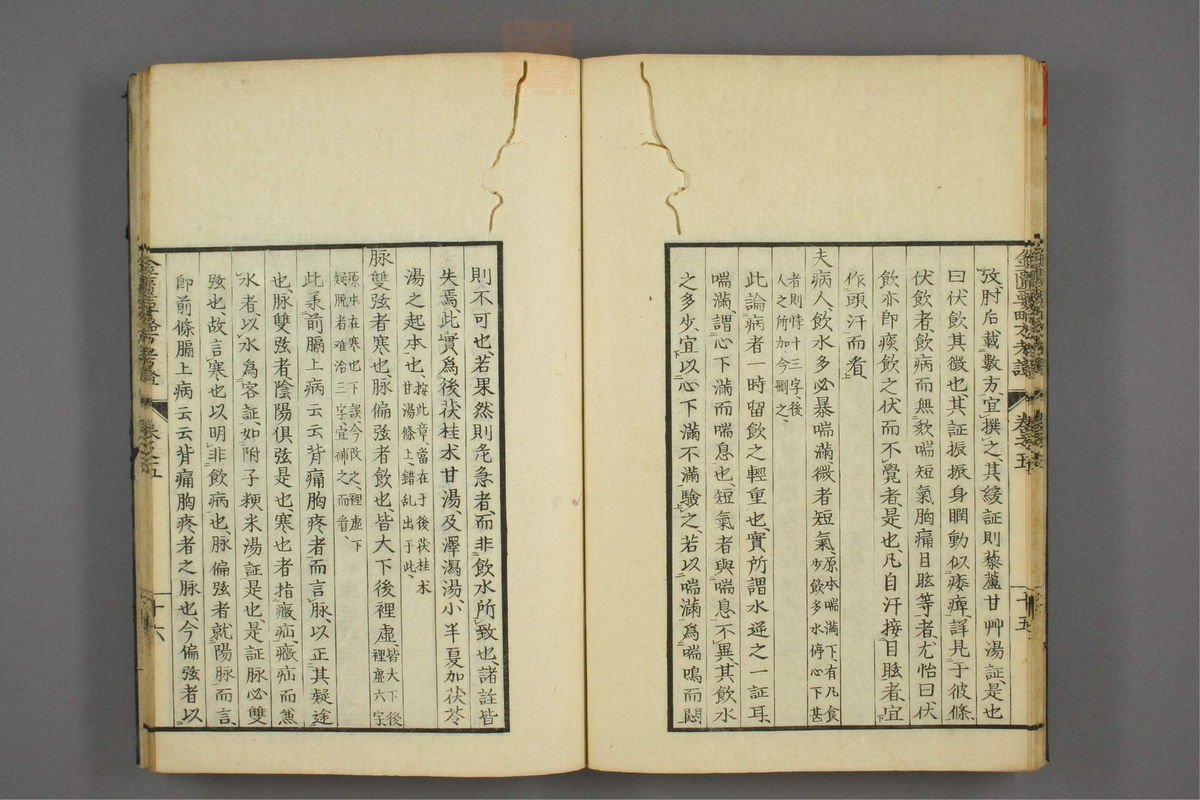 金匱要略方考證 卷之五 十五
攷肘后載數方宜撰之其緩証則藜蘆甘艸湯証是也
曰伏飮其徴也其証振振身瞤動似痿痺詳見于彼條
伏飮者飮病而無欬喘短氣胸痛目眩等者尤怡曰伏
飮亦卽痰飮之伏而不覺者是也凡自汗接目眩者宜
作頭汗而看
夫病人飮水多必暴喘滿微者短氣原本喘滿下有凡食
少飮多水停心下甚
者則悸十三字後
人之所加今刪之
此論病者一時留飮之輕重也實所謂水逆之一証耳
喘滿謂心下滿而喘息也短氣者與喘息不異其飮水
之多少宜以心下滿不滿驗之若以喘滿爲喘鳴而悶
則不可也若果然則危急者而非飮水所致也諸註皆
失焉此實爲後茯桂朮甘湯及澤瀉湯小半夏加茯苓
湯之起本也按此章當在于後茯桂朮
甘湯條上錯乱出于此
脉雙弦者寒也脉偏弦者飮也皆大下後裡虛皆大下後
裡虛六字
原本在寒也下誤今改之裡虛下
疑脱者难治三字宜補之而看
此承前膈上病云云背痛胸疼者而言脉以正其疑途
也脉雙弦者陰陽俱弦是也寒也者指癥疝癥疝而兼
水者以水爲客証如附子粳米湯証是也是証脉必雙
弦也故言寒也以明非飮病也脉偏弦者就陽脉而言
卽前條膈上病云云背痛胸疼者之脉也今偏弦者以
金匱要略方考證 卷之五 十六